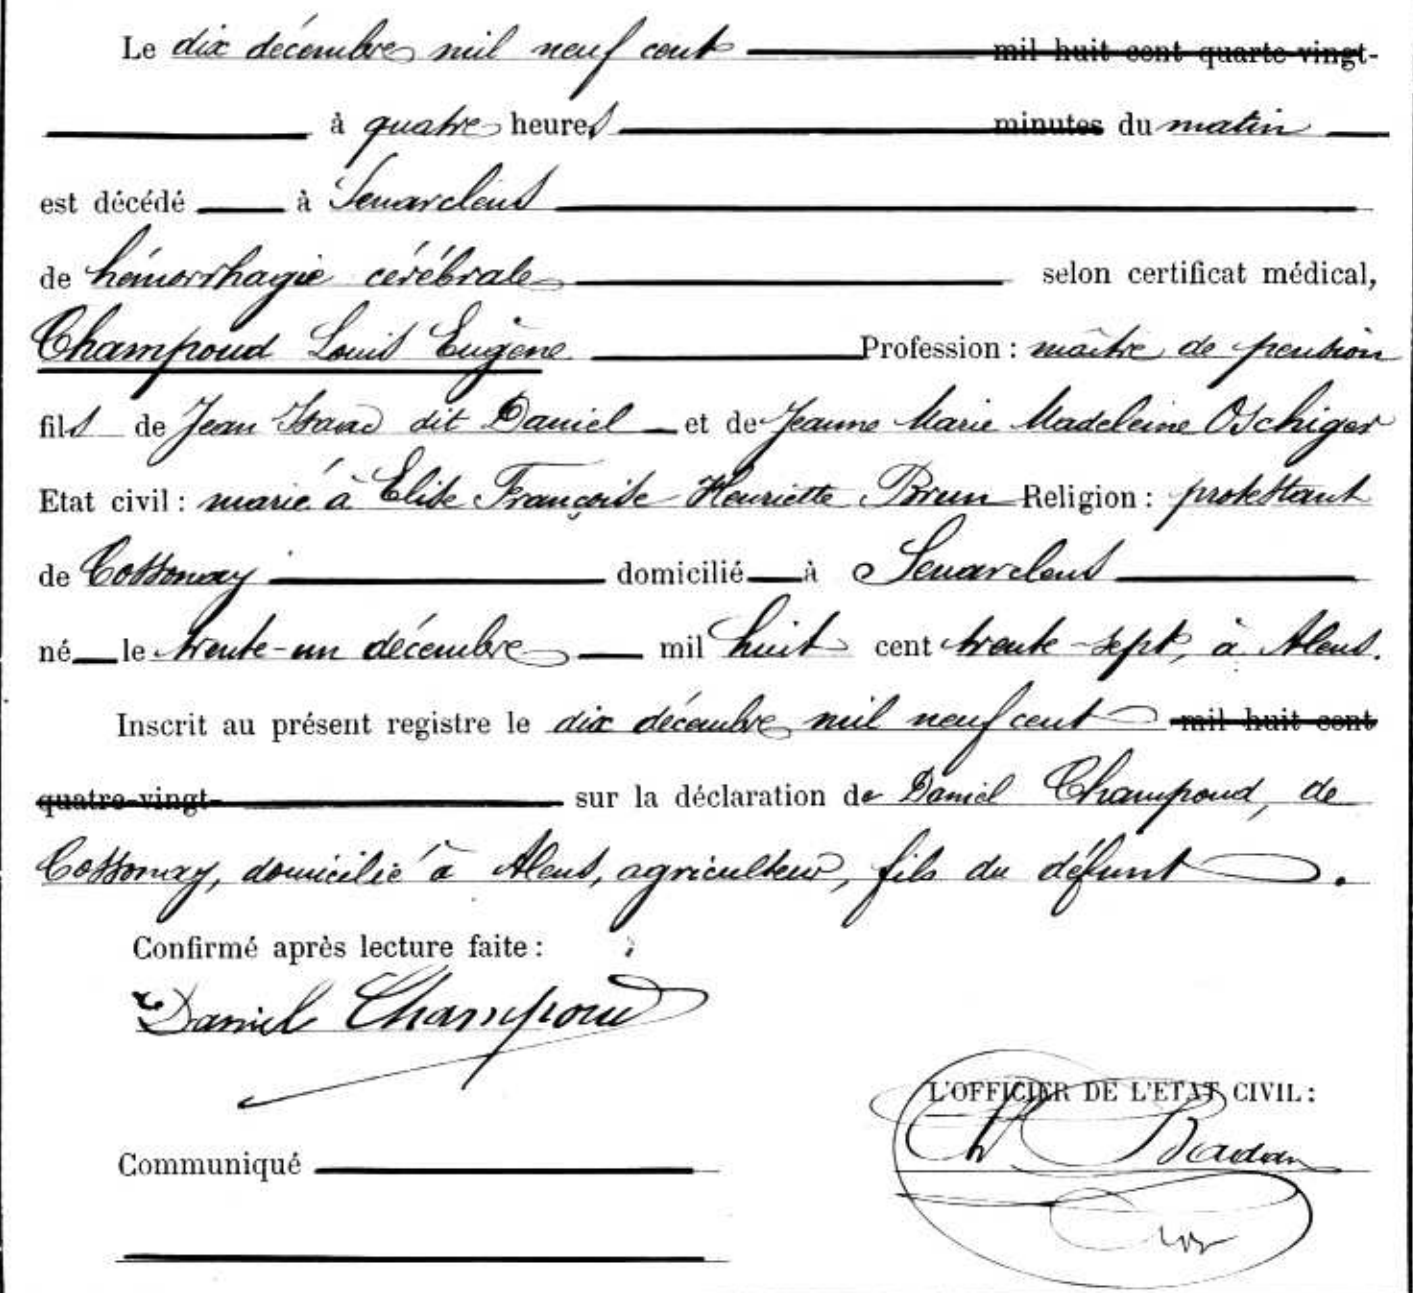 Le dix décembre mil neuf cent mil huit cent quarte-vingt-
à quatre heures minutes du matin
est décédé à Senarclens
de hémorrhagie cérébrale selon certificat médical,
Champoud Louis Eugène Profession : maître de pension
fils de Jean Isaac dit Daniel et de Jeanne Marie Madeleine Oschiger
Etat civil : marié à Elise Françoise Henriette Brun Religion : protestant
de Cossonay domicilié à Senarclens
né le trente-un décembre mil huit cent trente-sept, à Alens.
Inscrit au présent registre le dix décembre mil neuf cent mil huit cent
quatre-vingt- sur la déclaration de Daniel Champoud, de
Cossonay, domicilié à Alens, agriculteur, fils du défunt.
Confirmé après lecture faite :
Daniel Champoud
L'OFFICIER DE L'ETAT CIVIL :
Badan
Communiqué